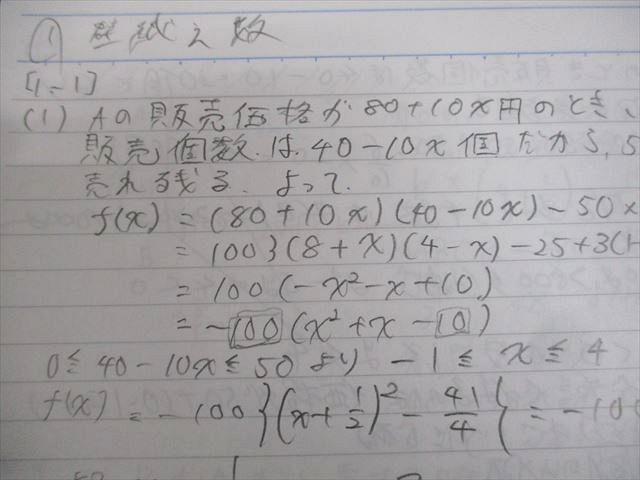 ① 型紙之数
[1-1]
(1) Aの販売価格が80+10x円のとき、
販売個数は、40-10x個だから, 5
売れ残る. よって.
f(x) = (80+10x)(40-10x)-50×
= 100}(8+x)(4-x)-25+3(1-
= 100(-x²-x+10)
= -100(x²+x-10)
0≦40-10x≦50より -1≦x≦4
f(x) = -100{(x+1/2)²-41/4} = -100